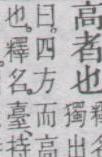 高者也
釋名
獨出
曰四方而高
也。釋名臺、持